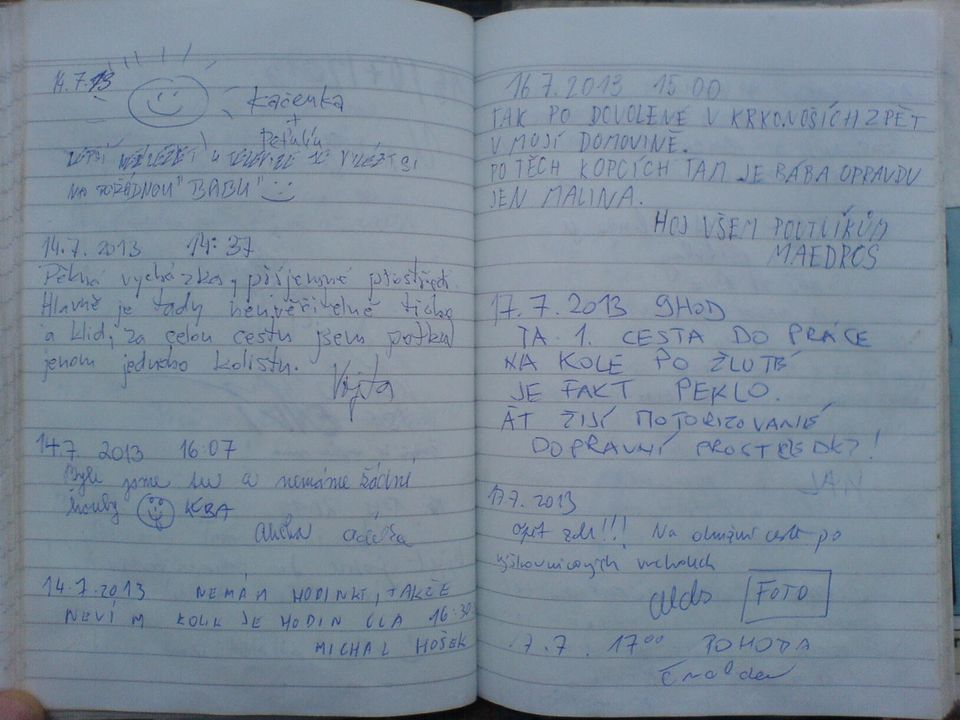 14.7.13
Kačenka
+
Peťulín
NA POŘÁDNOU "BÁBU"
14.7. 2013 14:37
Pěkná vycházka, příjemné prostředí.
Hlavně je tady neuvěřitelné ticho
a klid, za celou cestu jsem potkal
jenom jednoho kolistu.
Vojta
14.7 2013 16:07
Byli jsme tu a nemáme žádné
houby KBA
adélka
14.7.2013 NEMÁM HODINKY, TAKŽE
NEVÍM KOLIK JE HODIN CCA 16:30
MICHAL HOŠEK
16.7.2013 15:00
TAK PO DOVOLENÉ V KRKONOŠÍCH ZPĚT
V MOJÍ DOMOVINĚ.
PO TĚCH KOPCÍCH TAM JE BÁBA OPRAVDU
JEN MALINA.
HOJ VŠEM POUTLÍKŮM
MAEDROS
17.7.2013 9HOD
TA 1. CESTA DO PRÁCE
NA KOLE PO ŽLUTÉ
JE FAKT PEKLO.
AŤ ŽIJÍ MOTORIZOVANÉ
DOPRAVNÍ PROSTŘEDKY!
JAN
17.7. 2013
opět zde!!! Na okružní cestě po
výškovnicových vrcholech
FOTO
7.7. 17⁰⁰ POHODA